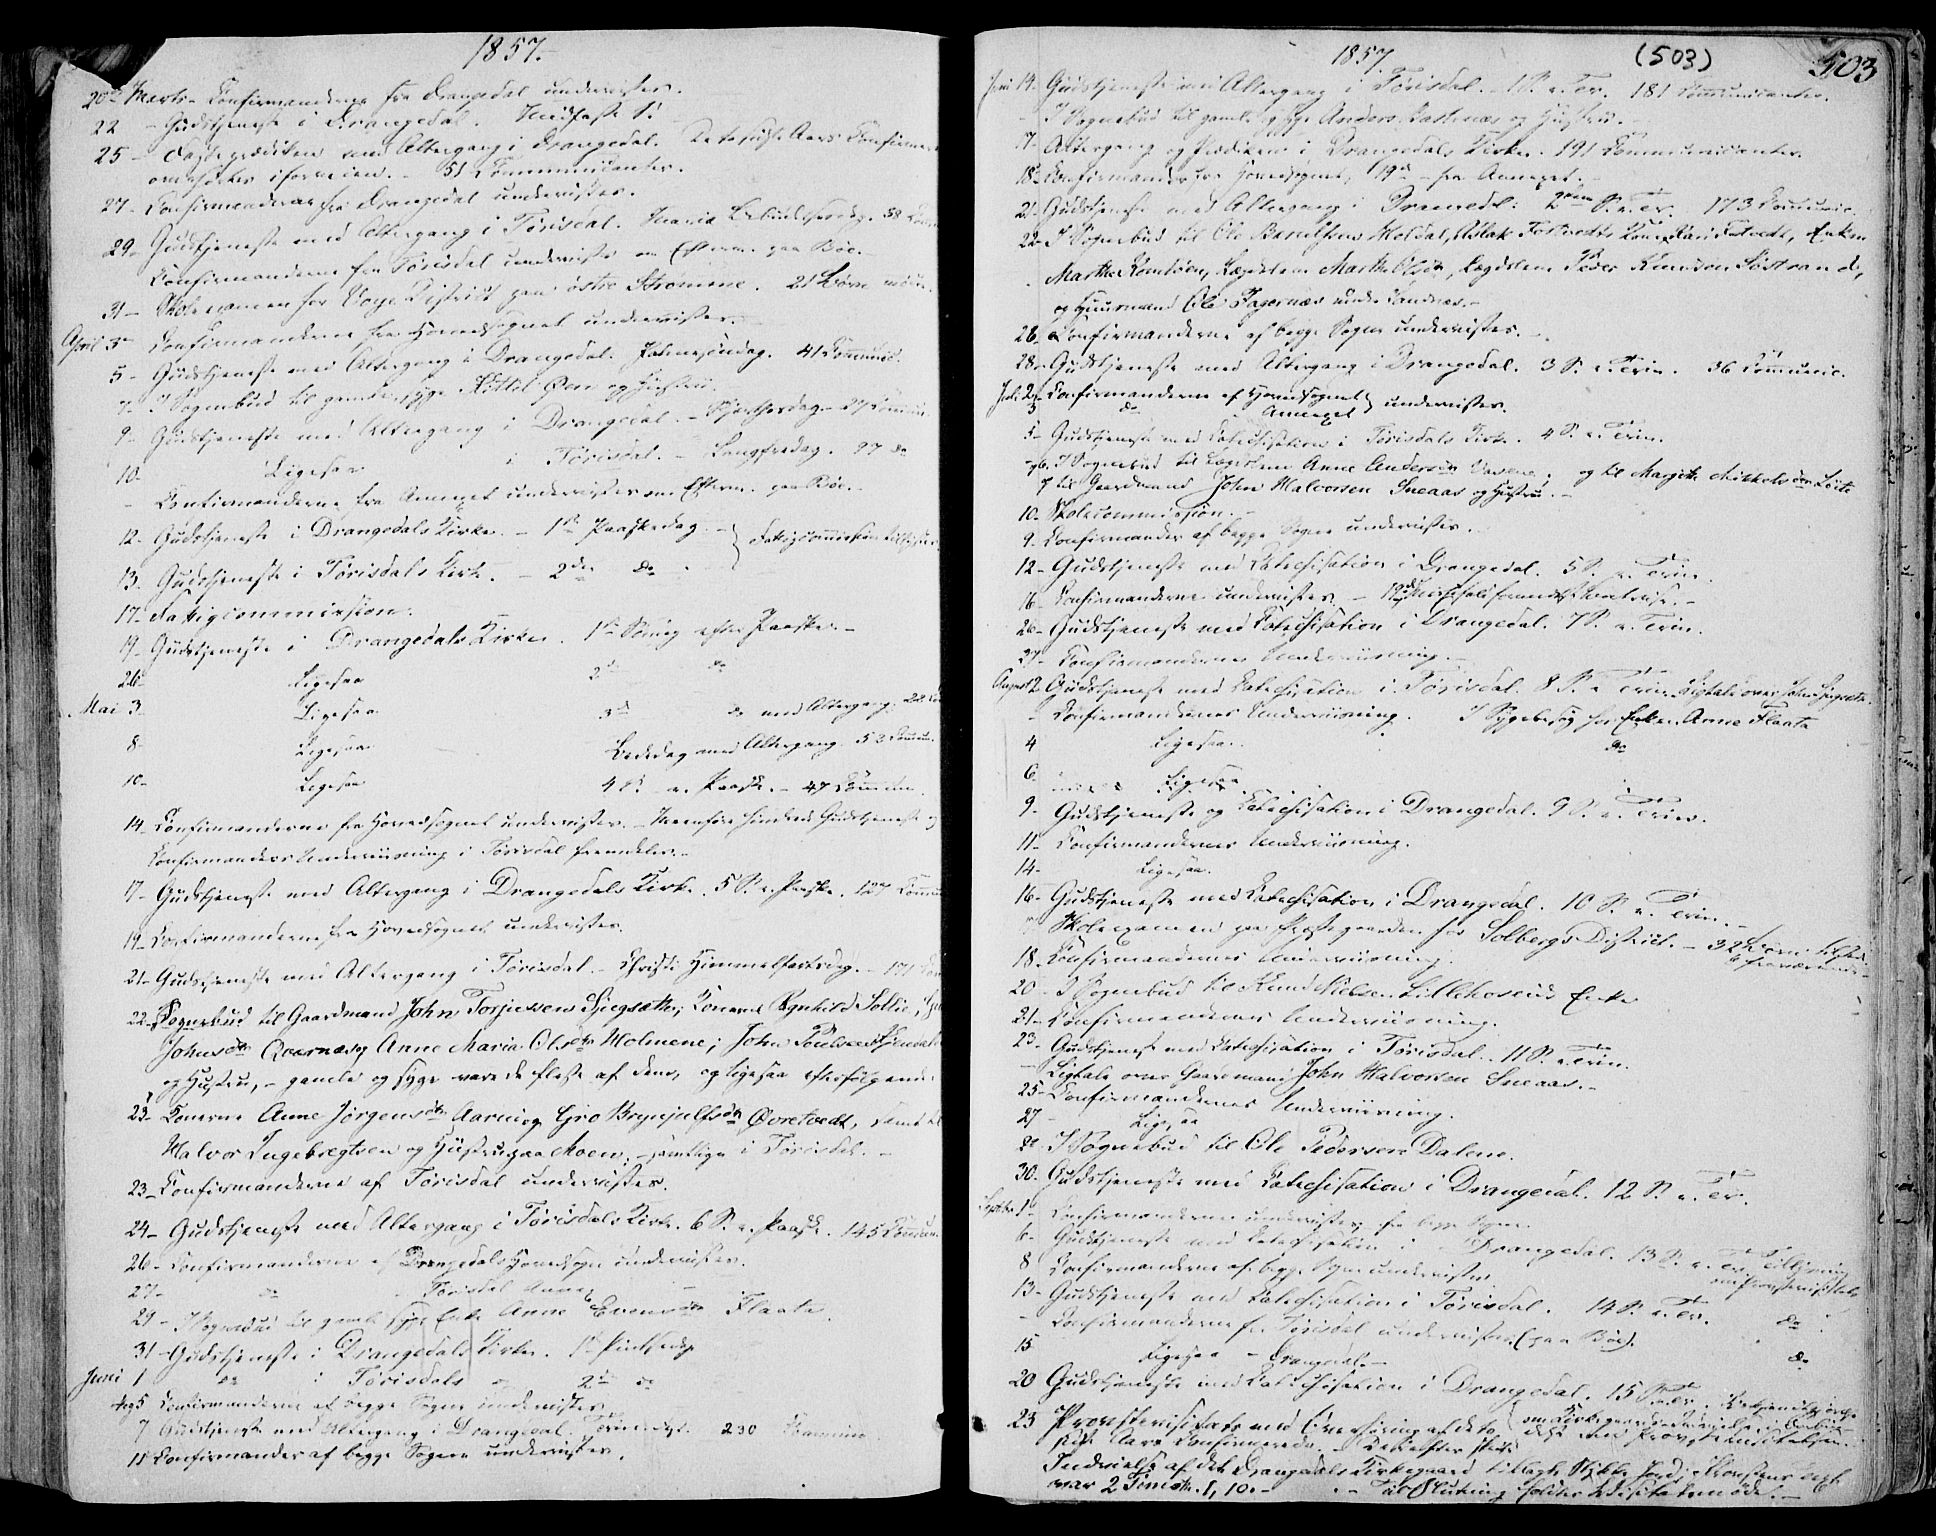 1857.
20de Marts - Confirmanderne fra Drangedal undervistes.
22 - Gudstjeneste i Drangedal. Midfaste S.
25 - Fasteprædiken med Altergang i Drangedal. De sidste Aars Confirmerede
51 Communicanter.
27 - Confirmanderne fra Drangedal undervistes.
29 - Gudstjeneste med Altergang i Tørisdal. Mariæ Bebudelsesdag. 38 Comm.
Confirmanderne fra Tørisdal undervistes om Efterm. paa Bøe.
31 - Skoleexamen for Voje District paa østre Strømme. 21 Børn
April 3die Confirmanderne fra Hovedsognet undervistes.
5 - Gudstjeneste med Altergang i Drangedal. Palmesøndag. 41 Communic.
7 - I Sognebud til gamle, syge Kittel Øen og Hustru.
9 - Gudstjeneste med Altergang i Drangedal. - Skjærthorsdag - 27 Commun.
10 - Ligesaa i Tørisdal. - Langfredag. 97 do
- Confirmanderne fra Annexet undervistes om Efterm. paa Bøe.
12 - Gudstjeneste i Drangedals Kirke. - 1ste Paaskedag. -
13. Gudstjeneste i Tørisdals Kirke. - 2den do
17 - Fattigcommission.
19 - Gudstjeneste i Drangedals Kirke. 1ste Søndag efter Paaske. -
26 - Ligesaa 2den do
Mai 3 - Ligesaa 3die do med Altergang. 22
8 - Ligesaa Bededag med Altergang. 52 Commun.
10 - Ligesaa 4de S. e. Paaske. - 47 Commun.
14 - Confirmanderne fra Hovedsognet undervistes. - hindrede Gudstjeneste og
Confirmanders Underviisning i Tørisdal fremdeles. -
17 - Gudstjeneste med Altergang i Drangedals Kirke. 5 S. e. Paaske. 127 Commun
19 - Confirmanderne fra Hovedsognet undervistes.
21 - Gudstjeneste med Altergang i Tørisdal. - Christi Himmelfartsdag. - 171
22 - Sognebud til Gaardmand John Torjussen Sjegsæther, Konerne Ragnhild Sollie,
Johnsdtr Qvernæs og Anne Maria Olsdtr Holmene; John
og Hustru, - gamle og syge vare de fleste af dem, og ligesaa efterfølgende
23 Konerne Anne Jørgensdtr Aarnæs og Gro Brynjulfsdtr Øvretvedt, samt til
Halvor Ingebregtsen og Hustru paa Moen, - samtlige i Tørisdal. -
23 - Confirmanderne af Tørisdal undervistes.
24 - Gudstjeneste med Altergang i Tørisdals Kirke. 6 S. e. Paaske. 145 Commun.
26 - Confirmanderne af Drangedals Hovedsogn undervistes.
27 - do Tørisdal Annex -
29 - I Sognebud til gamle syge Enke Anne Evensdtr Flaata.
31 - Gudstjeneste i Drangedals Kirke. 1ste Pintsedag
Juni 1 do i Tørisdals do 2den do
4 og 5 Confirmanderne af begge Sogne undervistes
7 Gudstjeneste med Altergang i Drangedal. Trinit. Fest. 230 Commun.
11 Confirmander af begge Sogne undervistes.
1857 (503) 503
Juni 14 - Gudstjeneste med Altergang i Tørisdal. - 1 S. e. Tr. 181 Communicanter.
- I Sognebud til gamle syge Anders Kastenæs og Hustru. -
Altergang og Prædiken i Drangedals Kirke. 191 Communicanter.
18 - Confirmander fra Hovedsognet, 19de - fra Annexet. -
21 - Gudstjeneste med Altergang i Drangedal. 2den S. e. Tr. 173 Communic.
22 - I Sognebud til Ole Meldal, Aslak Folvedts Kone Kari Tutvedt, Enken
Marthe Romtøen, Lægdslem Marthe Olsdtr, Lægdslem Peder Knudsen Søstrand,
og Huusmand Ole Fagernæs under Sandnæs. -
26 - Confirmanderne af begge Sogne undervistes. -
28 - Gudstjeneste med Altergang i Drangedal. 3 S. e. Trin. 36 Communic.
Juli 2 - Confirmanderne af Hovedsognet } undervistes.
3 do - Annexet
5 - Gudstjeneste med Catechisation i Tørisdals Kirke. 4 S. e. Trin.
I Sognebud til Lægdslem Anne Andersdtr og til Margith Mikkelsdtr Løite
og til Gaardmand John Halvorsen Sneaas og Hustru. -
10 - Skolecommission. -
9 - Confirmander af begge Sogne undervistes. -
12 - Gudstjeneste med Catechisation i Drangedal. 5 S. e. Trin.
16 - Confirmanderne undervistes. -
26 - Gudstjeneste med Catechisation i Drangedal. 7 S. e. Trin.
27 - Confirmandernes Underviisning.
August 2 Gudstjeneste med Catechisation i Tørisdal. 8 S. e. Trin. Ligtale over John Sjegsæter
- Confirmandernes Underviisning. I Sygebesøg hos Enken Anne Flaata
4 Ligesaa. do
6 Ligesaa
9 - Gudstjeneste og Catechisation i Drangedal. 9 S. e. Trin.
11 - Confirmandernes Underviisning.
14 - Ligesaa.
16 - Gudstjeneste med Catechisation i Drangedal. 10 S. e. Trin.
Skoleexamen paa Præstegaarden for Solbergs District. - 32 Børn tilstede
fraværende
18 - Confirmandernes Underviisning.
20 - I Sognebud til Knud Nielsen Lillehoseids Enke
21 - Confirmandernes Underviisning.
23 - Gudstjeneste med Catechisation i Tørisdal. 11 S. e. Trin.
- Ligtale over Gaardmand John Halvorsen Sneaas. -
25 - Confirmandernes Underviisning.
27 - Ligesaa
do I Sognebud til Ole Pedersen Dalene.
30 - Gudstjeneste med Catechisation i Drangedal. 12 S. e. Tr.
Septbr 1 - Confirmanderne undervistes fra begge Sogne.
6 - Gudstjeneste med Catechisation i Drangedal. 13 S. e. Tr. Tillysning
om Provstevisitats
8 Confirmanderne af begge Sogne undervistes.
13 - Gudstjeneste med Catechisation i Tørisdal. 14 S. e. Tr. do
- Confirmanderne fra Tørisdal undervistes (paa Bøe).
15 Ligesaa - Drangedal - do
20 Gudstjeneste med Catechisation i Drangedal. 15 S. e. Tr. Bekjendtgjørelse
om Kirkegaardens Indvielse i Forbindelse med Provstevisitatsen.
23 Provstevisitats med Overhøring af dette og sidste Aars Confirmerede. - Derefter skete
Indvielse af det Drangedals Kirkegaard tillagte Stykke Jord; Provstens Text
var 2 Timoth. 1, 10. - - Til Slutning holdtes Visitatsmøde. -